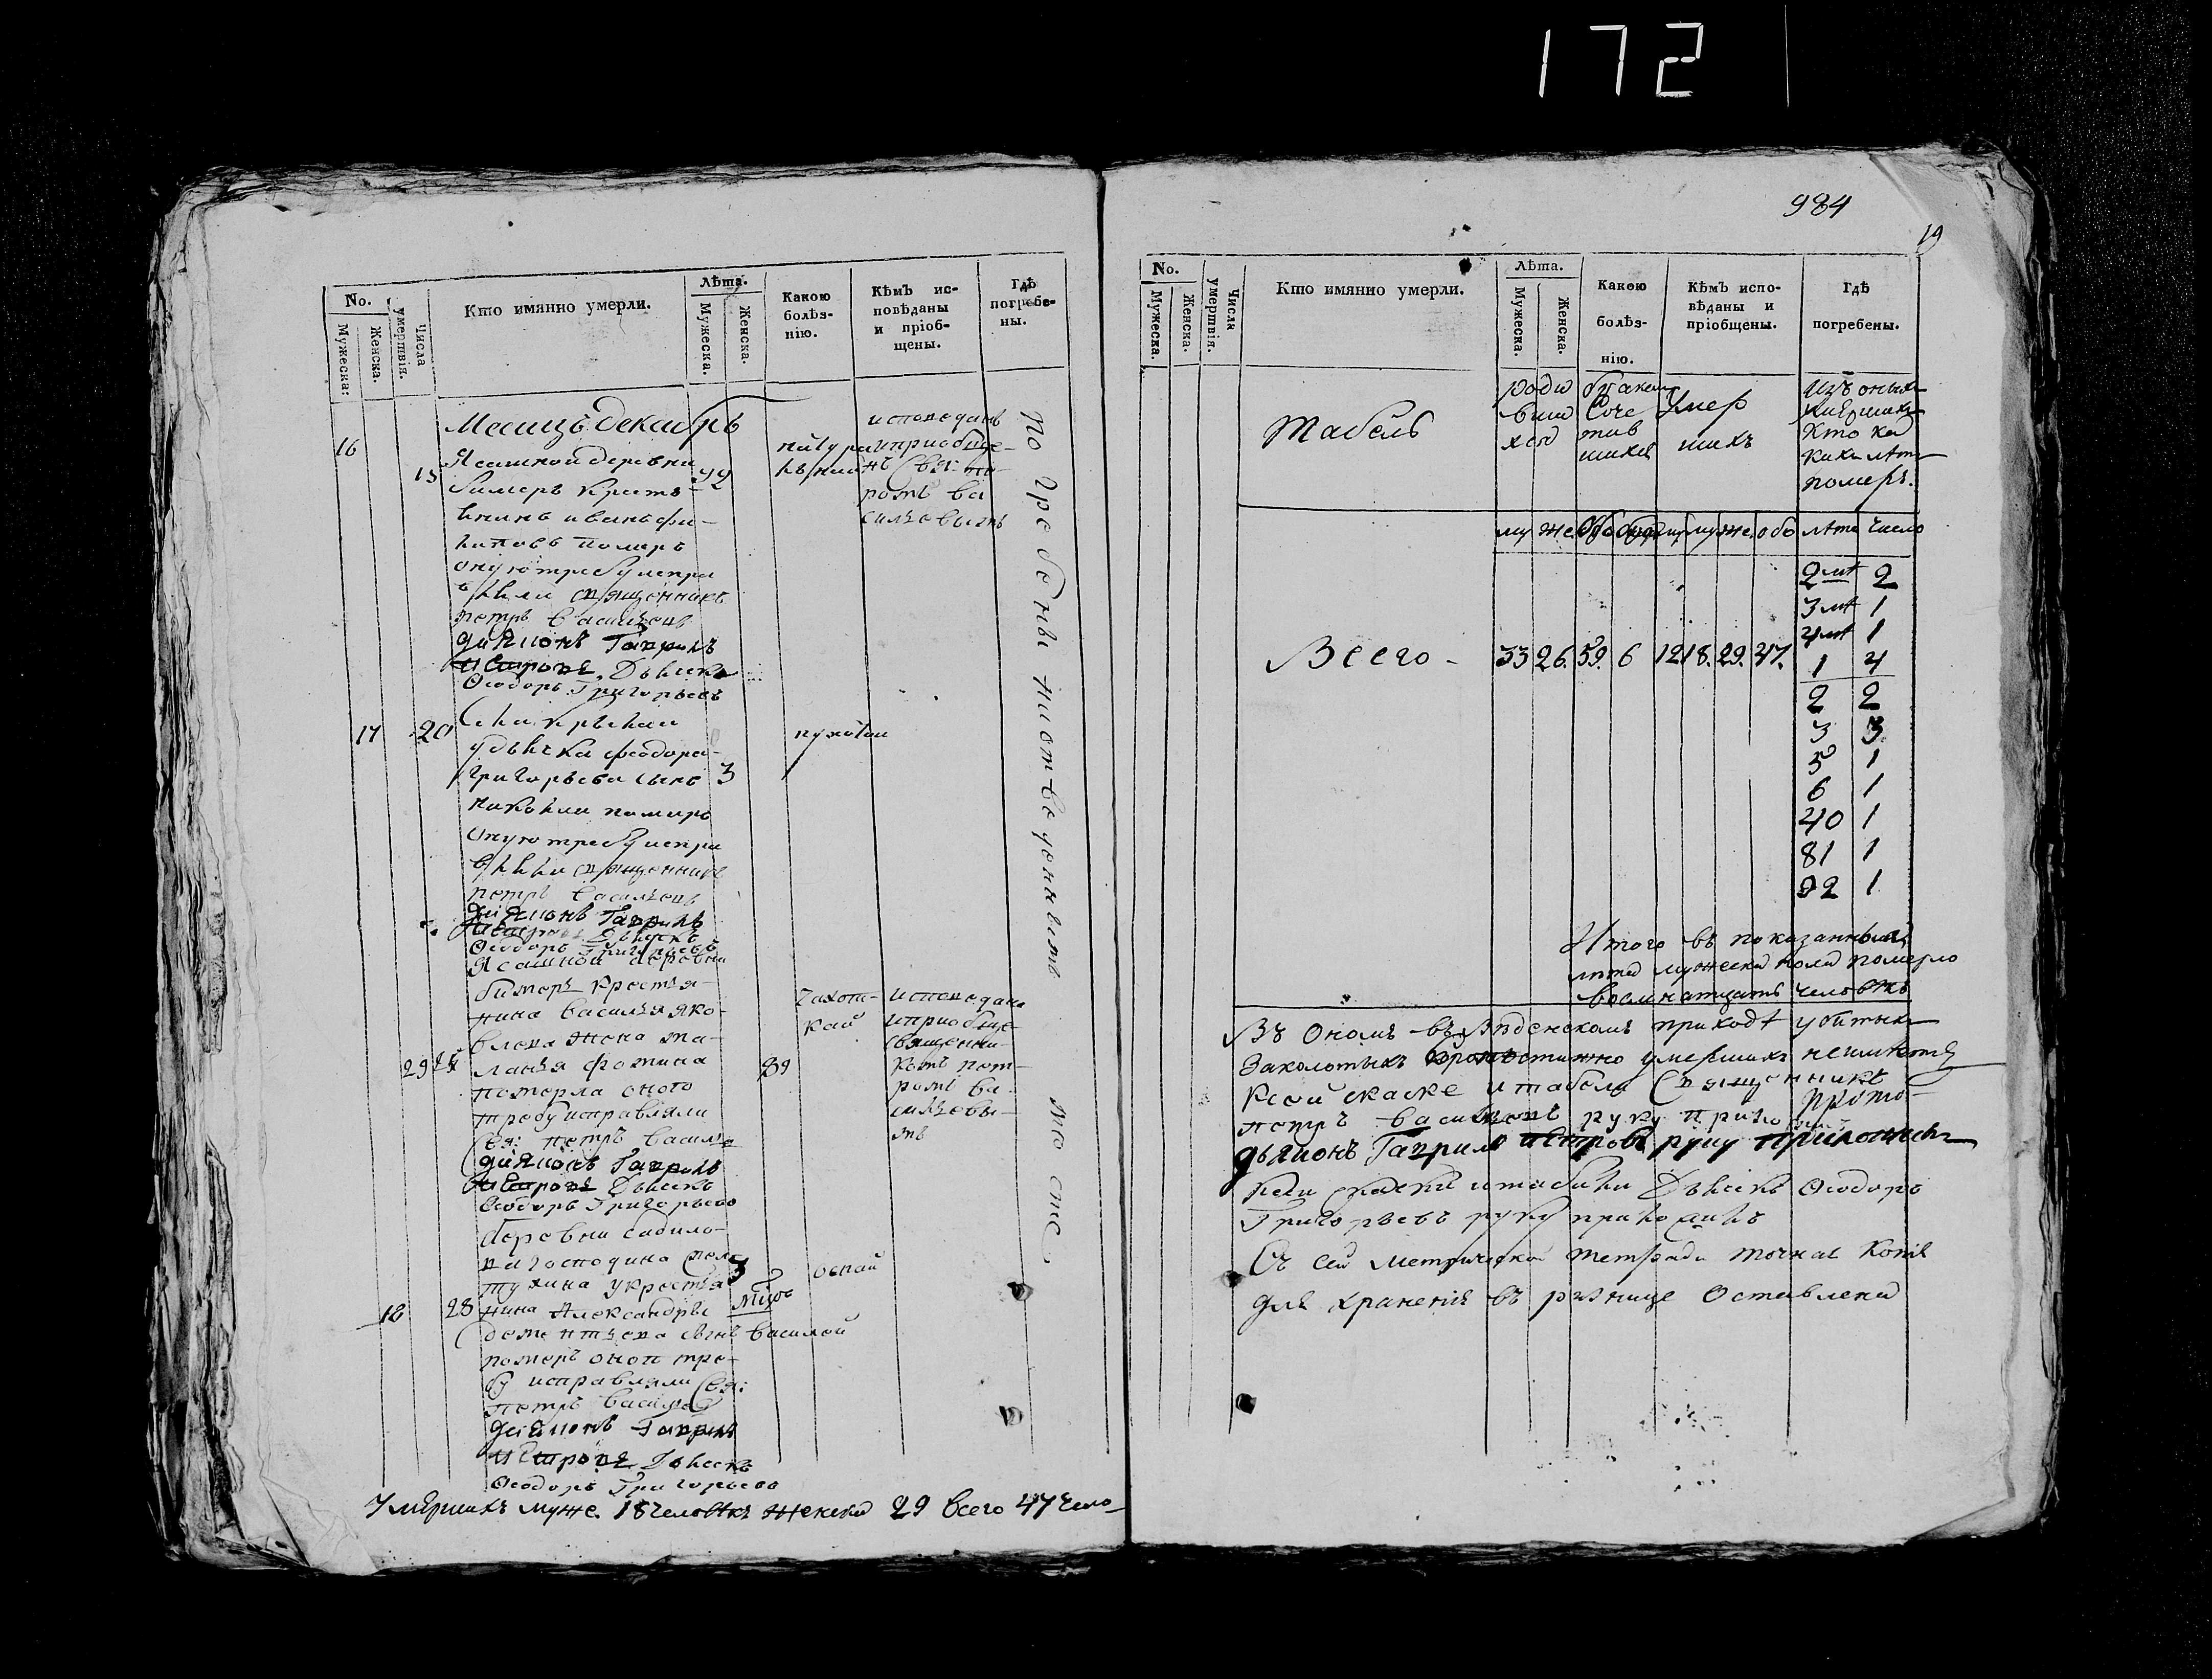 172
984
19
No.
Мужеска:
Женска.
Числа умертвія.
Кто имянно умерли.
Лѣта.
Мужеска.
Женска.
Какою
болѣз-
нію.
Кѣмъ ис-
повѣданы
и пріоб-
щены.
Гдѣ
погребе-
ны.
Месицъ декабрь
16
15
Ясашной деревни
Бимеръ крестья-
нинъ иванъ фи-
липовъ померъ
оную требу испра
вляли священникъ
петръ васильевъ
діяконъ Гаврилъ
Петровъ Дьячекъ
Ѳеодоръ Григорьевъ
92
исповеданъ
и приобще-
нъ свя: пе-
ромъ ва
сильевымъ
17
20
удьячка феодора
григорьева сынъ
николаи померъ
оную требу испра
вляли священникъ
петръ васильевъ
діяконъ Гаврилъ
Петровъ Дьячекъ
Ѳеодоръ Григорьевъ
3
Ясашной деревни
бимеръ крестья-
нина василья яко-
влева жена ма-
ланья фомина
померла оного
требу исправляли
свя: петръ василье
діяконъ Гаврилъ
Петровъ Дьячекъ
Ѳеодоръ Григорьево
29
89
чахот-
кой
исповедана
и приобще-
священни-
комъ пет-
ромъ ва
сильевы-
мъ
18
28
деревни
господина
у крестья
нина Александры
дементьева сынъ василей
померъ оной тре-
бу исправляли свя:
петръ василье
діяконъ Гаврилъ
Петровъ Дьячекъ
Ѳеодоръ Григорьево
3
оспой
Умершихъ муже. 18 человѣкъ женска 29 всего 47 чело
No.
Мужеска.
Женска.
Числа умертвія.
Кто имянно умерли.
Лѣта.
Мужеска.
Женска.
Какою
болѣз-
нію.
Кѣмъ испо-
вѣданы и
пріобщены.
Гдѣ
погребены.
Табель
роди
вши
хся
бракомъ
соче
тав
шихся
Умер
шихъ
изъ оныхъ
умершихъ
кто ка
кихъ лѣтъ
померъ.
му же. обо му же. обо лѣта число
Всего - 33 26. 59. 6 12 18. 29. 47.
2 2
3 1
4 1
1 4
2 2
3 3
5 1
6 1
40 1
81 1
92 1
Итого въ показанныя
лѣта мужеска пола померло
восемнатцать человѣкъ
Въ ономъ въ приходѣ убитыхъ
заколотыхъ умершихъ неимѣется
Ксей скаске и табели священникъ
петръ васильевъ руку прило
дьяконъ Гаврилъ Петровъ руку приложилъ
Дьячекъ Ѳеодоръ
Григорьевъ руку приложилъ
Съ сей метрической тетради точная копія
для храненія въ ризнице оставлена